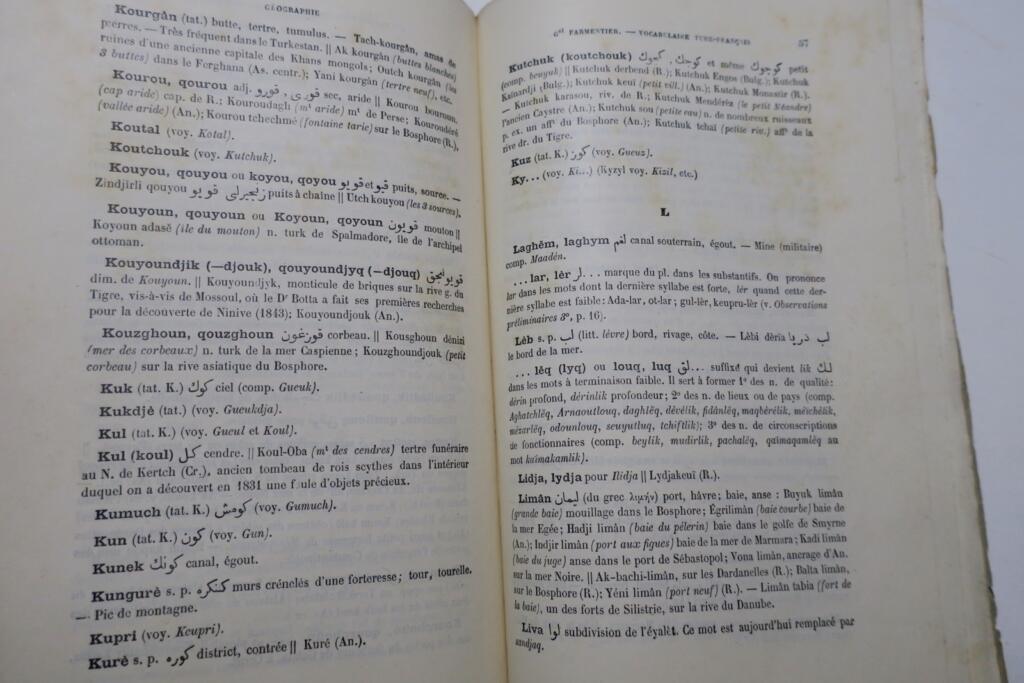 GÉOGRAPHIE
Kourgân (tat.) butte, tertre, tumulus. — Tach-kourgân, amas de
pierres. — Très fréquent dans le Turkestan. || Ak kourgân (buttes blanches)
ruines d'une ancienne capitale des Khans mongols; Outch kourgân (les
3 buttes) dans le Ferghana (As. centr.); Yani kourgân (tertre neuf), etc.
Kourou, qourou adj. قورى , قورو sec, aride || Kourou bouroun,
(cap aride) cap. de R.; Kouroudagh (mt aride) mt de Perse; Kouroudéré
(vallée aride) (An.); Kourou tchechmé (fontaine tarie) sur le Bosphore (R.),
Koutal (voy. Kotal).
Koutchouk (voy. Kutchuk).
Kouyou, qouyou ou koyou, qoyou قويو et قيو puits, source. —
Zindjirli qouyou زنجيرلى قويو puits à chaîne || Utch kouyou (les 3 sources).
Kouyoun, qouyoun ou Koyoun, qoyoun قويون mouton ||
Koyoun adasê (île du mouton) n. turk de Spalmadore, île de l'archipel
ottoman.
Kouyoundjik (—djouk), qouyoundjyq (—djouq) قويونجق
dim. de Kouyoun. || Kouyoundjyk, monticule de briques sur la rive g. du
Tigre, vis-à-vis de Mossoul, où le Dr Botta a fait ses premières recherches
pour la découverte de Ninive (1843); Kouyoundjouk (An.).
Kouzghoun, qouzghoun قوزغون corbeau. || Kousghoun dénizi
(mer des corbeaux) n. turk de la mer Caspienne; Kouzghoundjouk (petit
corbeau) sur la rive asiatique du Bosphore.
Kuk (tat. K.) كوك ciel (comp. Gueuk).
Kukdjê (tat.) (voy. Gueukdja).
Kul (tat. K.) (voy. Gueul et Koul).
Kul (koul) كل cendre. || Koul-Oba (mt des cendres) tertre funéraire
au N. de Kertch (Cr.), ancien tombeau de rois scythes dans l'intérieur
duquel on a découvert en 1831 une foule d'objets précieux.
Kumuch (tat. K.) كومش (voy. Gumuch).
Kun (tat. K.) كون (voy. Gun).
Kunek كونك canal, égout.
Kungurê s. p. كنكره murs crénelés d'une forteresse; tour, tourelle.
— Pic de montagne.
Kupri (voy. Keupri).
Kurê s. p. كوره district, contrée || Kuré (An.).
Gal PARMENTIER. — VOCABULAIRE TURK-FRANÇAIS 57
Kutchuk (koutchouk) كوچك , كچوك et même كوچوك petit
(comp. beuyuk) || Kutchuk derbend (R.); Kutchuk Engos (Bulg.); Kutchuk
Kaïnardji (Bulg.); Kutchuk keuï (petit vill.) (An.); Kutchuk Monastir (R.).
— Kutchuk karasou, riv. de R.; Kutchuk Mendéria (le petit Méandre)
l'ancien Caystre (An.); Kutchuk sou (petite eau) n. de nombreux ruisseaux
p. ex. un afft du Bosphore (An.); Kutchuk tchaï (petite riv.) afft de la
rive dr. du Tigre.
Kuz (tat. K.) كوز (voy. Gueuz).
Ky... (voy. Ki...) (Kyzyl voy. Kizil, etc.)
L
Laghêm, laghym لغم canal souterrain, égout. — Mine (militaire)
comp. Maadén.
...lar, lèr لر... marque du pl. dans les substantifs. On prononce
lar dans les mots dont la dernière syllabe est forte, lér quand cette der-
nière syllabe est faible: Ada-lar, ot-lar; gul-lèr, keupru-lèr (v. Observations
préliminaires 3°, p. 16).
Lêb s. p. لب (litt. lèvre) bord, rivage, côte. — Lèbi dèria لب دريا
le bord de la mer.
...lêq (lyq) ou louq, luq لق... suffixe qui devient lik لك
dans les mots à terminaison faible. Il sert à former 1° des n. de qualité:
dérin profond, dérinlik profondeur; 2° des n. de lieux ou de pays (comp.
Aghatchlêq, Arnaoutlouq, daghlêq, dévélik, fidânlêq, maqbérélik, méichélik,
mézarlêq, odounlouq, seuyutluq, tchiftlik); 3° des n. de circonscriptions
de fonctionnaires (comp. beylik, mudirlik, pachalêq, qaïmaqamlêq au
mot kaïmakamlik).
Lidja, lydja pour Ilidja || Lydjakeuï (R.).
Limân ليمان (du grec λιμήν) port, hâvre; baie, anse : Buyuk limân
(grande baie) mouillage dans le Bosphore; Égrilimân (baie courbe) baie de
la mer Egée; Hadji limân (baie du pélerin) baie dans le golfe de Smyrne
(An.); Indjir limân (port aux figues) baie de la mer de Marmara; Kadi limân
(baie du juge) anse dans le port de Sébastopol; Vona limân, ancrage d'An.
sur la mer Noire. || Ak-bachi-limân, sur les Dardanelles (R.); Balta limân,
sur le Bosphore (R.); Yéni limân (port neuf) (R.). — Limân tabia (fort de
la baie), un des forts de Silistrie, sur la rive du Danube.
Liva لوا subdivision de l'éyalèt. Ce mot est aujourd'hui remplacé par
sandjaq.